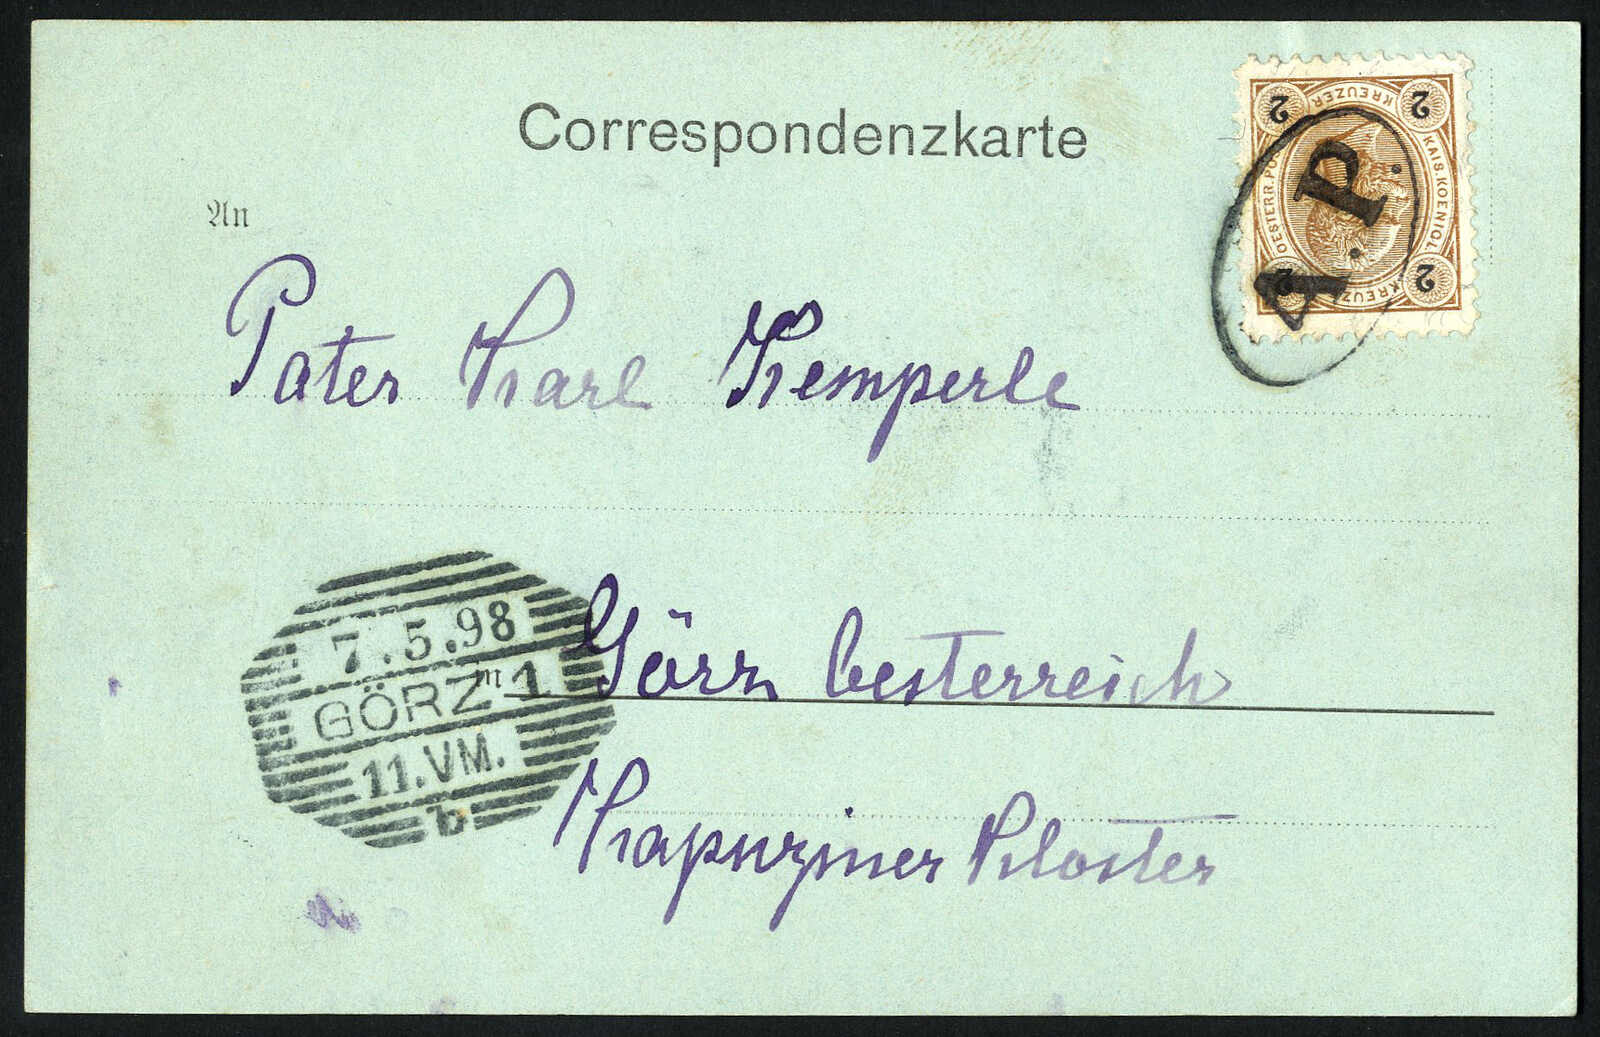 Correspondenzkarte
2 KREUZER 2
KAIS. KOENIGL.
OESTERR. POST
2 KREUZER 2
A.P.
An
Pater Karl Kemperle
7.5.98
GÖRZ 1
11.VM.
b
in Görz Oesterreich
Kapuziner Kloster